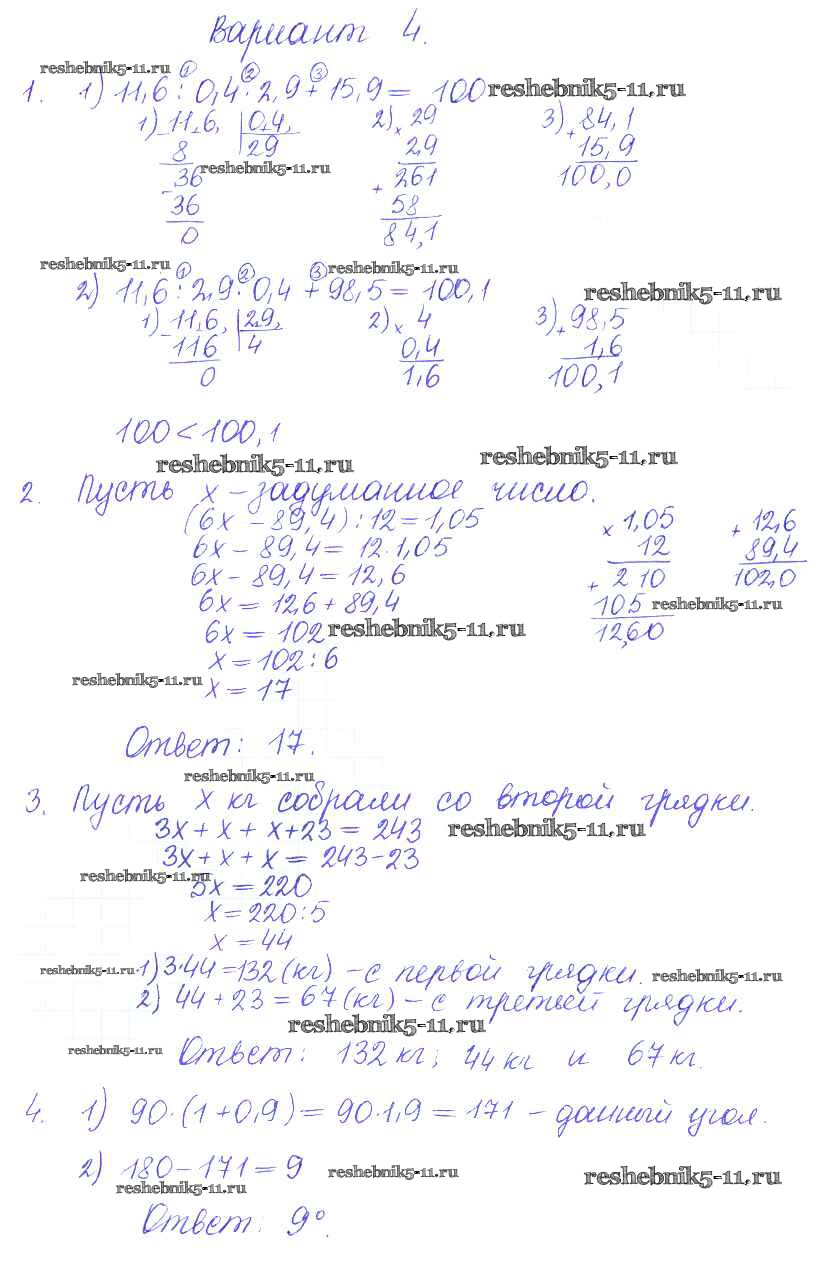 Вариант 4.
reshebnik5-11.ru ① ② ③
1. 1) 11,6 : 0,4 · 2,9 + 15,9 = 100 reshebnik5-11.ru
1) 11,6, |0,4, 2) × 29 3) + 84,1
8 29 2,9 15,9
reshebnik5-11.ru
- 36 + 261 100,0
36 58
0 84,1
reshebnik5-11.ru ① ② ③ reshebnik5-11.ru
2) 11,6 : 2,9 · 0,4 + 98,5 = 100,1 reshebnik5-11.ru
1) 11,6, |2,9, 2) × 4 3) + 98,5
116 4 0,4 1,6
0 1,6 100,1
100 < 100,1
reshebnik5-11.ru reshebnik5-11.ru
2. Пусть х – задуманное число.
(6х – 89,4) : 12 = 1,05 × 1,05 + 12,6
6х – 89,4 = 12 · 1,05 12 89,4
6х – 89,4 = 12,6 + 210 102,0
6х = 12,6 + 89,4 105 reshebnik5-11.ru
6х = 102 reshebnik5-11.ru 12,60
х = 102 : 6
reshebnik5-11.ru х = 17
Ответ: 17.
reshebnik5-11.ru
3. Пусть х кг собрали со второй грядки.
3х + х + х + 23 = 243 reshebnik5-11.ru
3х + х + х = 243 – 23
reshebnik5-11.ru
5х = 220
х = 220 : 5
х = 44
reshebnik5-11.ru 1) 3 · 44 = 132 (кг) – с первой грядки. reshebnik5-11.ru
2) 44 + 23 = 67 (кг) – с третьей грядки.
reshebnik5-11.ru
reshebnik5-11.ru Ответ: 132 кг; 44 кг и 67 кг.
4. 1) 90 · (1 + 0,9) = 90 · 1,9 = 171 – данный угол.
2) 180 – 171 = 9 reshebnik5-11.ru reshebnik5-11.ru
reshebnik5-11.ru
Ответ: 9°.